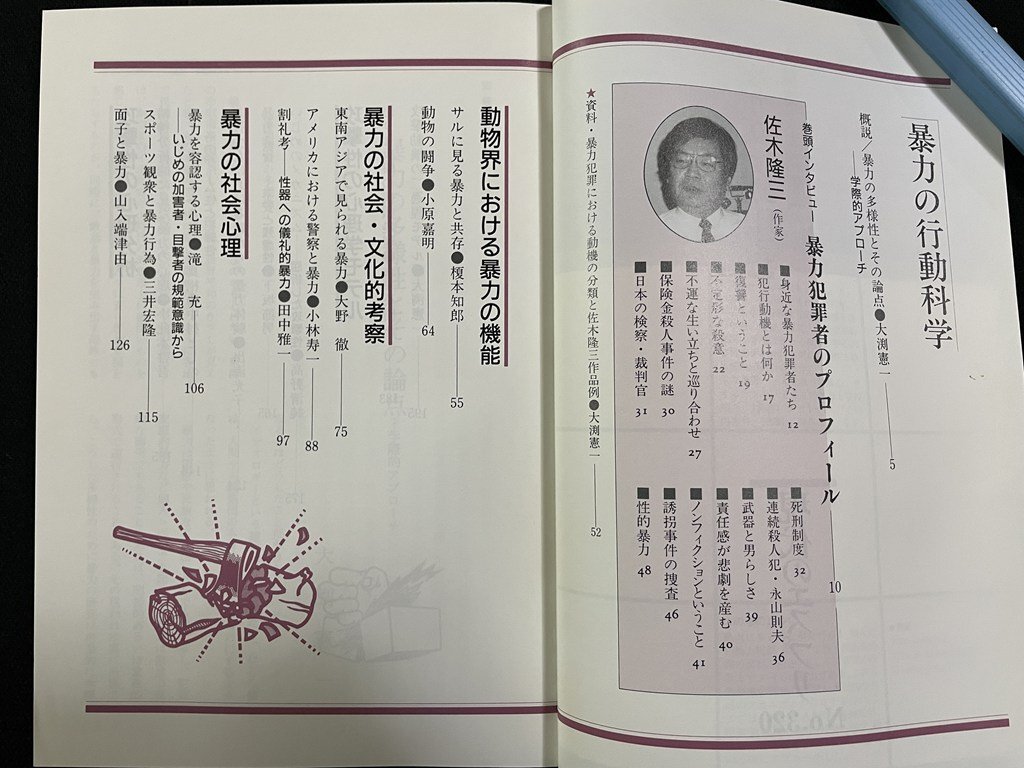 暴力の行動科学
概説/暴力の多様性とその論点●大渕憲一 5
――学際的アプローチ
巻頭インタビュー 暴力犯罪者のプロフィール 10
佐木隆三(作家)
■身近な暴力犯罪者たち 12
■犯行動機とは何か 17
■復讐ということ 19
■不定形な殺意 22
■不運な生い立ちと巡り合わせ 27
■保険金殺人事件の謎 30
■日本の検察・裁判官 31
■死刑制度 32
■連続殺人犯・永山則夫 36
■武器と男らしさ 39
■責任感が悲劇を産む 40
■ノンフィクションということ 41
■誘拐事件の捜査 46
■性的暴力 48
★資料・暴力犯罪における動機の分類と佐木隆三作品例●大渕憲一 52
動物界における暴力の機能
サルに見る暴力と共存●榎本知郎 55
動物の闘争●小原嘉明 64
暴力の社会・文化的考察
東南アジアで見られる暴力●大野 徹 75
アメリカにおける警察と暴力●小林寿一 88
割礼考――性器への儀礼的暴力●田中雅一 97
暴力の社会心理
暴力を容認する心理●滝 充 106
――いじめの加害者・目撃者の規範意識から
スポーツ観衆と暴力行為●三井宏隆 115
面子と暴力●山入端津由 126
No.320